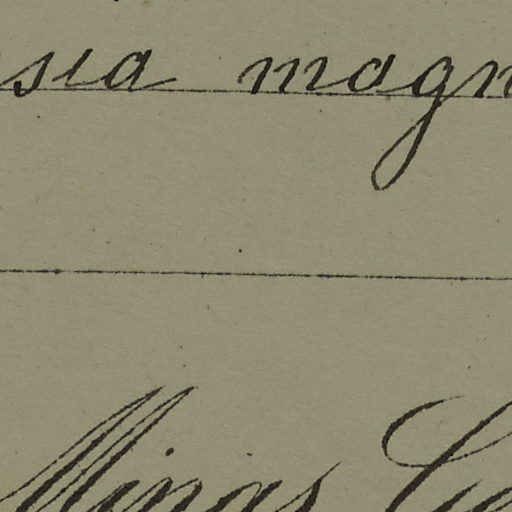 sia magn
Minas Ge